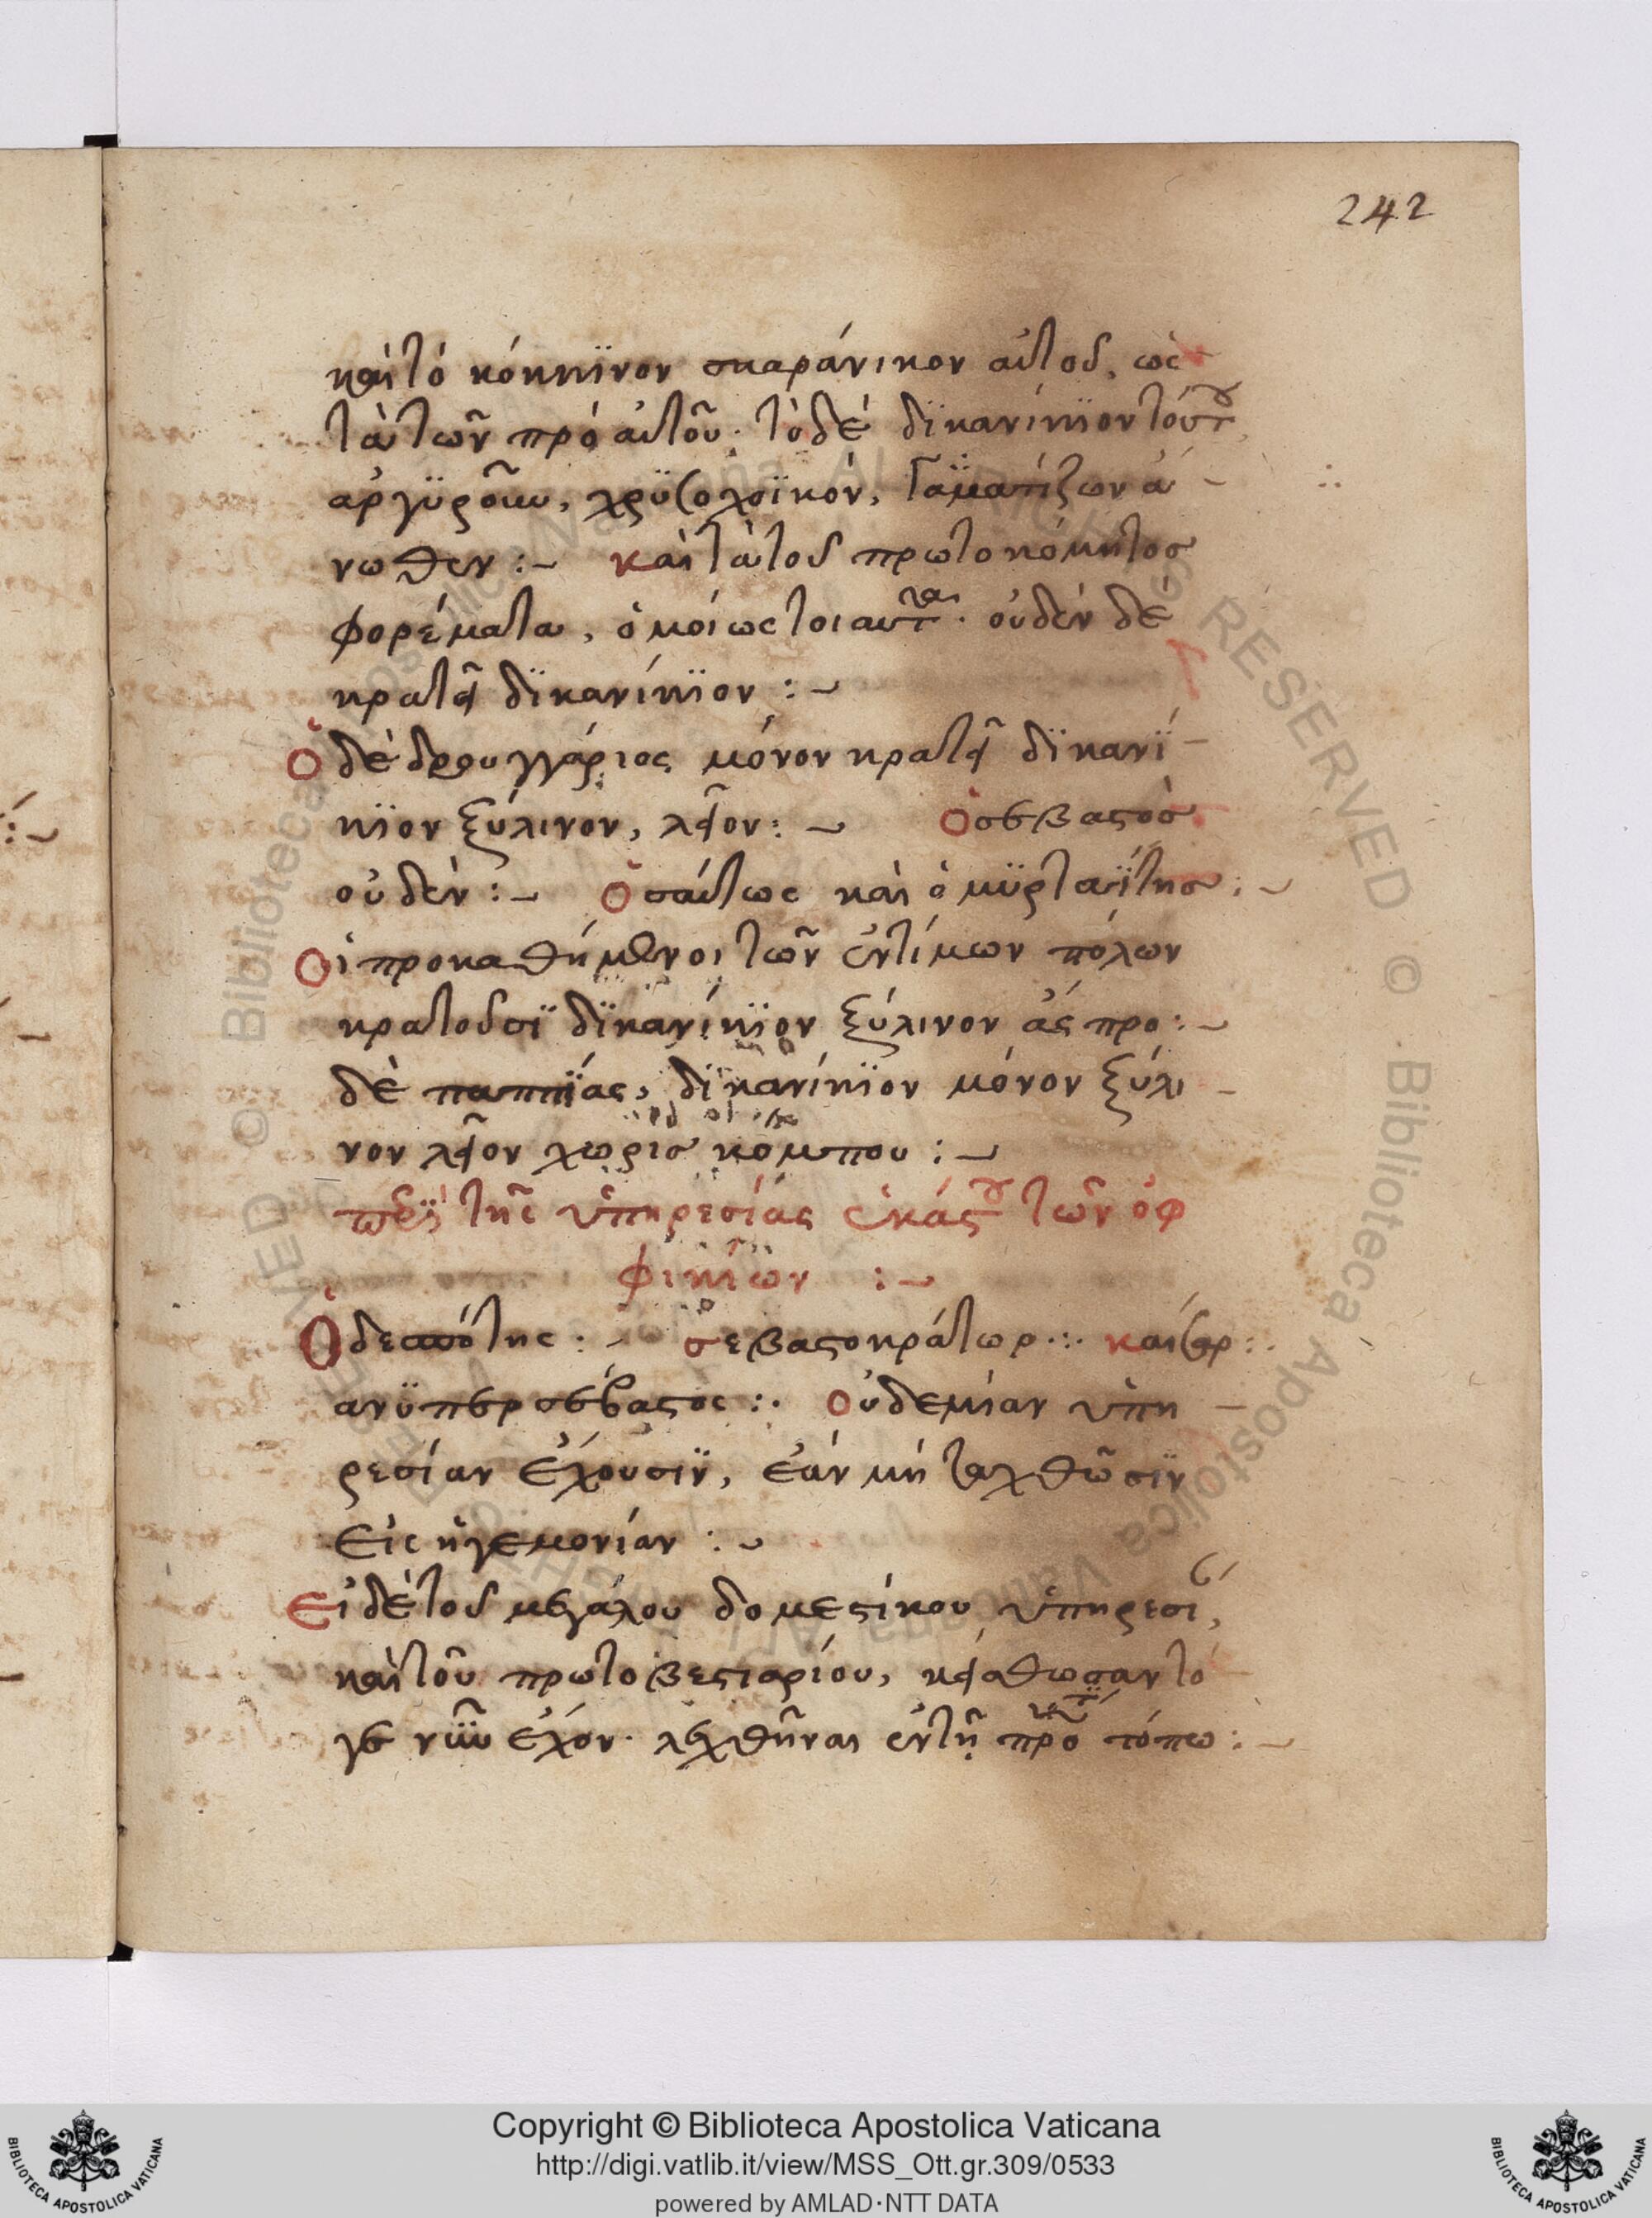 242
καὶ τὸ κόκκϊνον σκαράνικον αὐτοῦ, ὡς
τὰ τῶν πρὸ αὐτοῦ· τὸ δὲ δϊκανίκϊον τούτου
ἀργϋροῦν, χρϋσοχοϊκόν,
νωθεν :~ καὶ τὰ τοῦ πρωτοκόμητοσ
φορέματα, ὁμοίως τοιαυτα· οὐδὲν δὲ
κρατεῖ δϊκανίκϊον :~
Ὁ δὲ δρουγγάριος μόνον κρατεῖ δϊκανί-
κϊον ξύλινον, λεῖον :~ ὁ σεβαστὸσ
οὐδέν :~ Ὁσαύτως καὶ ὁ μϋρταΐτησ :~
Οἱ προκαθήμενοι τῶν ἐντίμων πόλεων
κρατοῦσϊ δϊκανίκϊον ξύλινον
δὲ παππίας, δϊκανίκϊον μόνον ξύλι-
νον λεῖον χωρισ κόμπου :~
περὶ τῆς ὑπηρεσίας ἑκάστου τῶν ὀφ
φικίων :~
Ὁ δεσπότης :~ σεβαστοκράτωρ ·:· καίσαρ :·
πανϋπερσέβαστος :· οὐδεμίαν ὑπη-
ρεσίαν ἔχουσϊν, ἐὰν μὴ ταχθῶσϊν
εἰς ἡγεμονίαν :~
Εἰ δὲ τοῦ μεγάλου δομεστίκου ὑπηρεσί,
καὶ τοῦ πρωτοβεστιαρίου, κείσθωσαν τό
γε νῦν ἔχον· λεχθῆναι ἐν τῷ τόπω :~
Copyright © Biblioteca Apostolica Vaticana
http://digi.vatlib.it/view/MSS_Ott.gr.309/0533
powered by AMLAD·NTT DATA
BIBLIOTECA APOSTOLICA VATICANA
BIBLIOTECA APOSTOLICA VATICANA